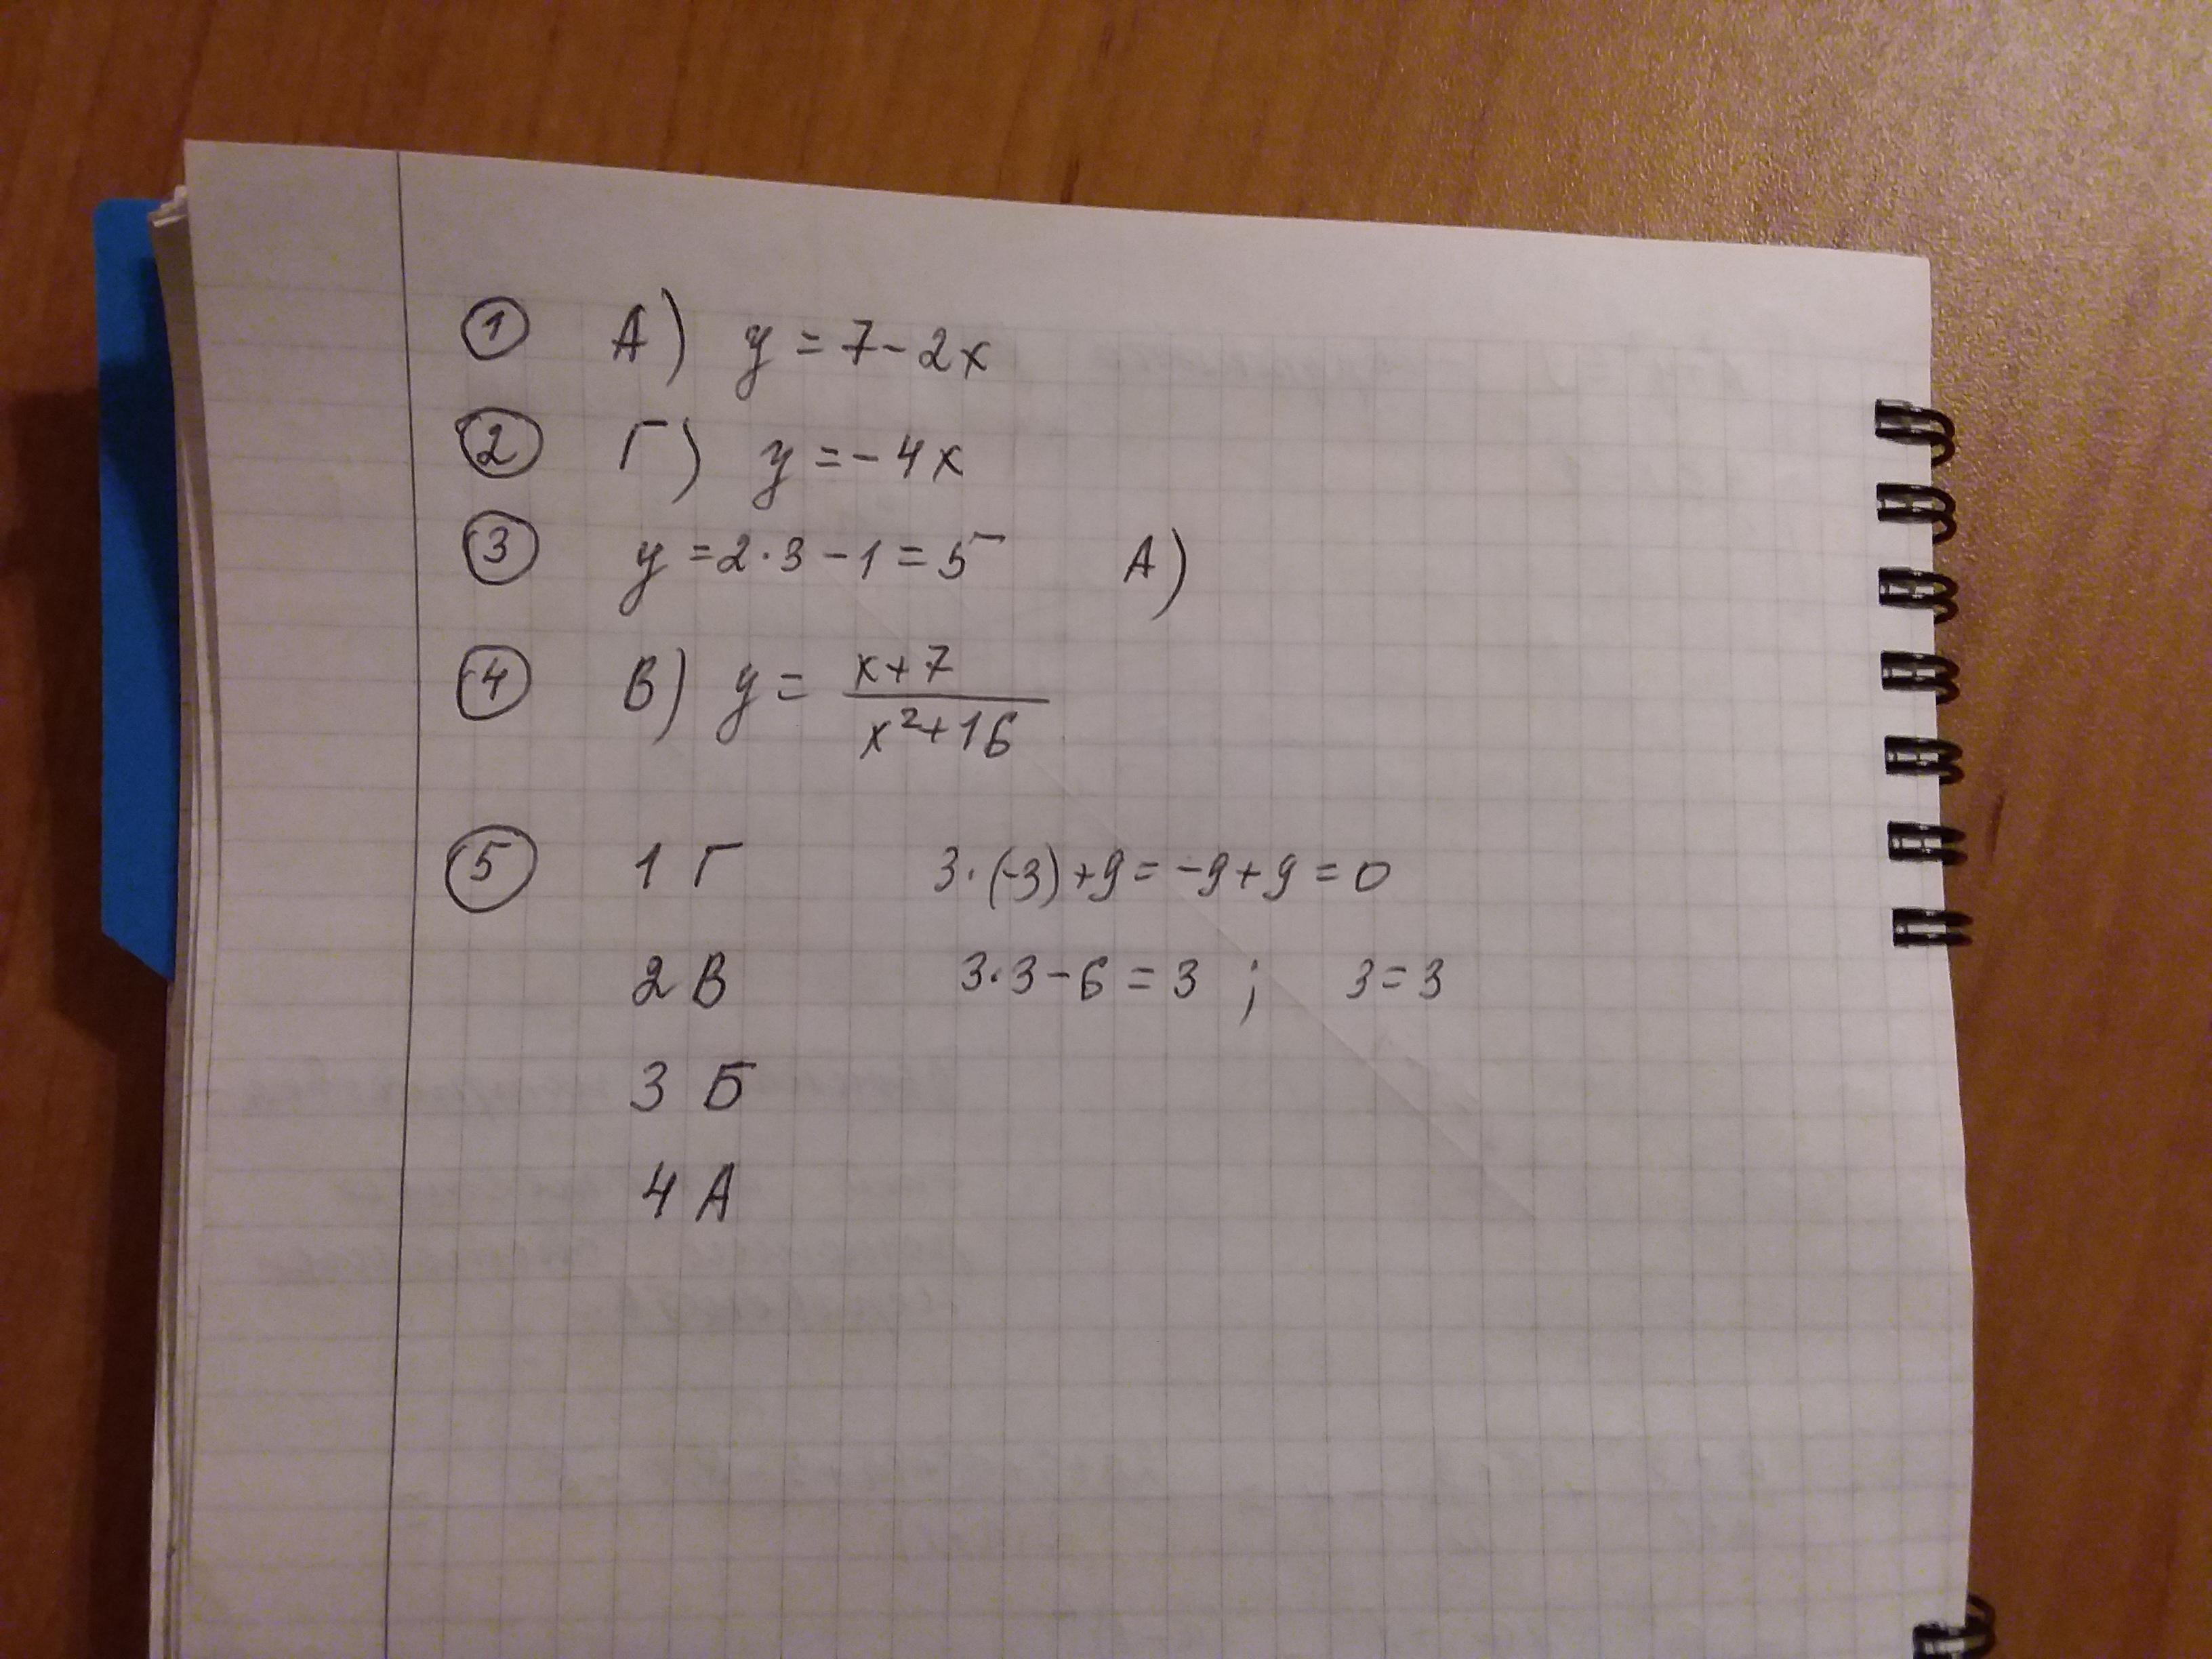 ① А) y = 7 - 2x
② Г) y = - 4x
③ y = 2·3 - 1 = 5 А)
④ В) y = (x+7)/(x²+16)
⑤ 1 Г 3·(-3)+9 = -9+9 = 0
2 В 3·3-6 = 3 ; 3 = 3
3 Б
4 А